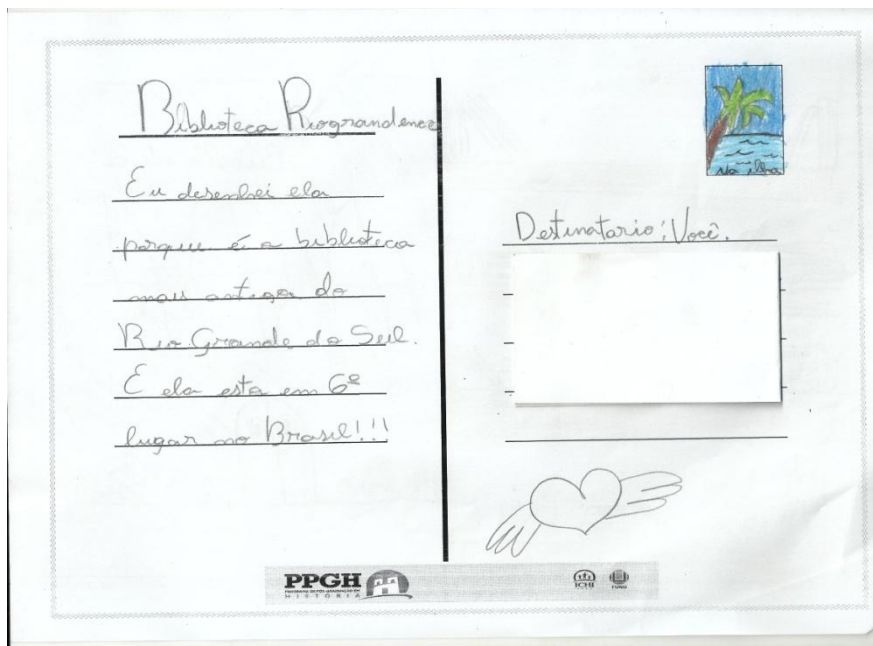 Biblioteca Riograndence
Eu desenhei ela
porque é a biblioteca
mais antiga do
Rio Grande do Sul.
E ela esta em 6º
lugar no Brasil!!!
Na ilha
Destinatario: Você.
PPGH
PROGRAMA DE PÓS-GRADUAÇÃO EM
HISTÓRIA
ICHI
FURG